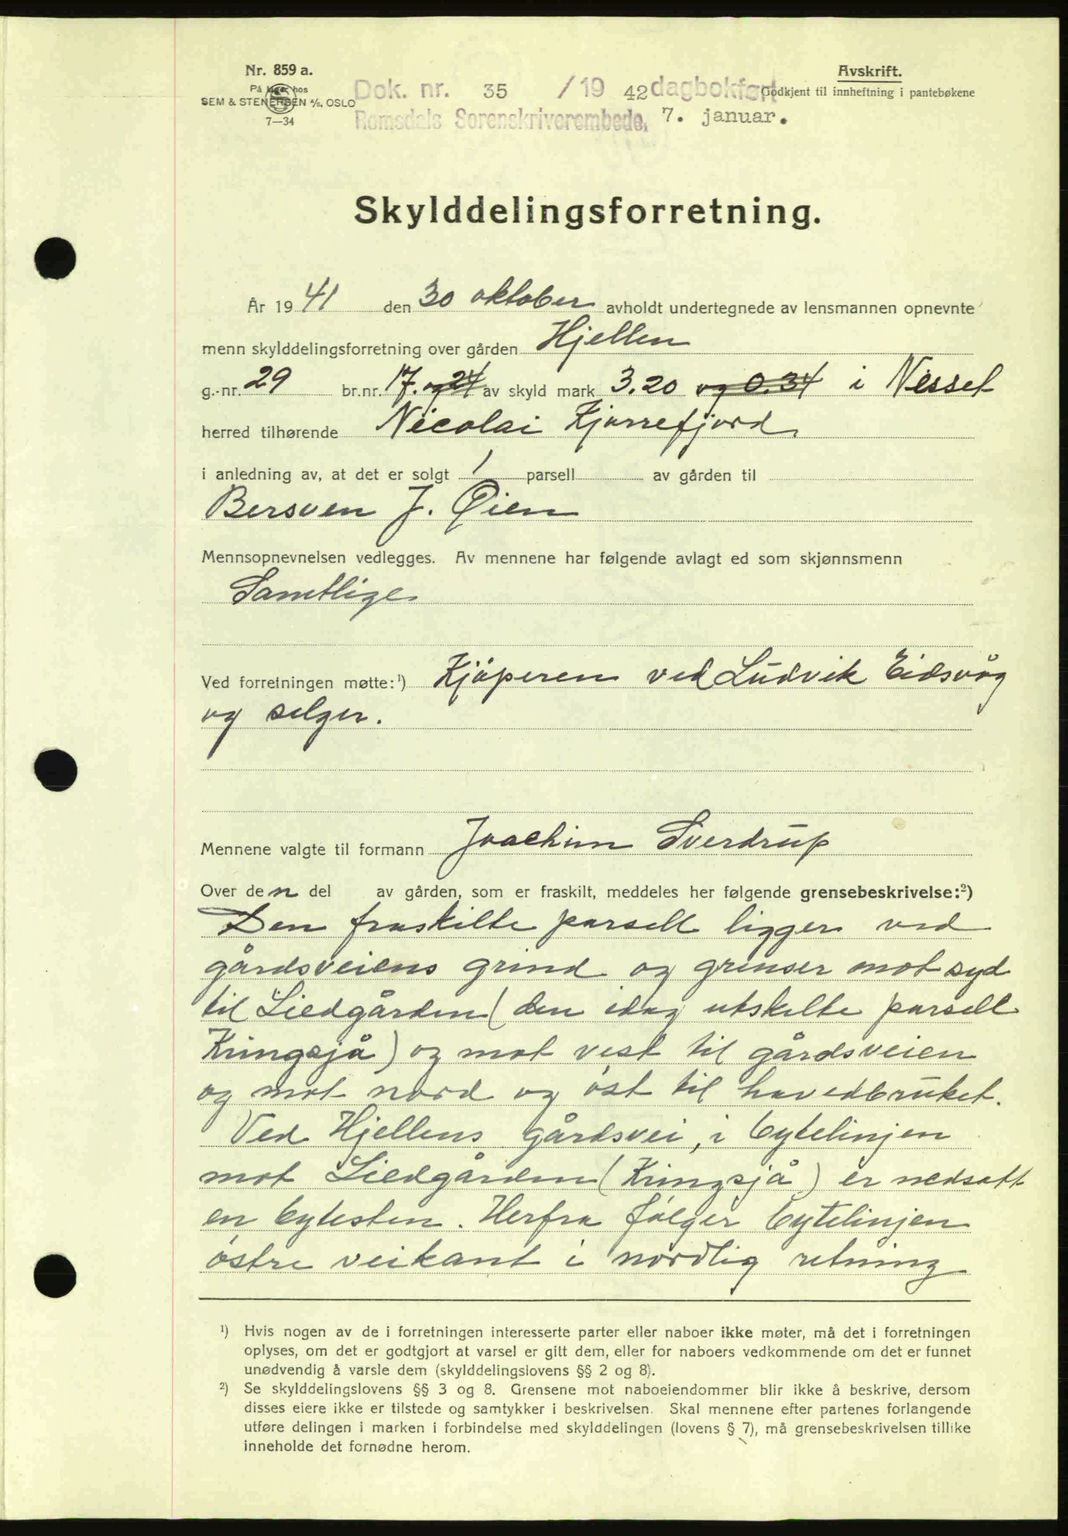 Nr. 859 a.
På lager hos
SEM & STENERSEN A/S, OSLO
7—34
Dok. nr. 35 /19 42 dagbokført
Romsdals Sorenskriverembede, 7. januar.
Avskrift.
Godkjent til innheftning i pantebøkene
Skylddelingsforretning.
År 19 41 den 30 oktober avholdt undertegnede av lensmannen opnevnte
menn skylddelingsforretning over gården Hjellen
g.-nr. 29 br.nr. 17. og 24 av skyld mark 3.20 og 0.34 i Nesset
herred tilhørende Nicolai Kjørrefjord
i anledning av, at det er solgt 1 parsell av gården til
Bersven J. Øien
Mennsopnevnelsen vedlegges. Av mennene har følgende avlagt ed som skjønnsmenn
Samtlige
Ved forretningen møtte:¹) Kjøperen ved Ludvik Eidsvåg
og selger.
Mennene valgte til formann Joachim Sverdrup
Over den del av gården, som er fraskilt, meddeles her følgende grensebeskrivelse:²)
Den fraskilte parsell ligger ved
gårdsveiens grind og grenser mot syd
til Liedgården (den idag utskilte parsell
Kringsjå) og mot vest til gårdsveien
og mot nord og øst til hovedbruket.
Ved Hjellens gårdsvei, i bytelinjen
mot Liedgården (Kringsjå) er nedsatt
en bytesten. Herfra følger bytelinjen
østre veikant i nordlig retning
¹) Hvis nogen av de i forretningen interesserte parter eller naboer ikke møter, må det i forretningen
oplyses, om det er godtgjort at varsel er gitt dem, eller for naboers vedkommende om det er funnet
unødvendig å varsle dem (skylddelingslovens §§ 2 og 8).
²) Se skylddelingslovens §§ 3 og 8. Grensene mot naboeiendommer blir ikke å beskrive, dersom
disses eiere ikke er tilstede og samtykker i beskrivelsen. Skal mennene efter partenes forlangende
utføre delingen i marken i forbindelse med skylddelingen (lovens § 7), må grensebeskrivelsen tillike
inneholde det fornødne herom.